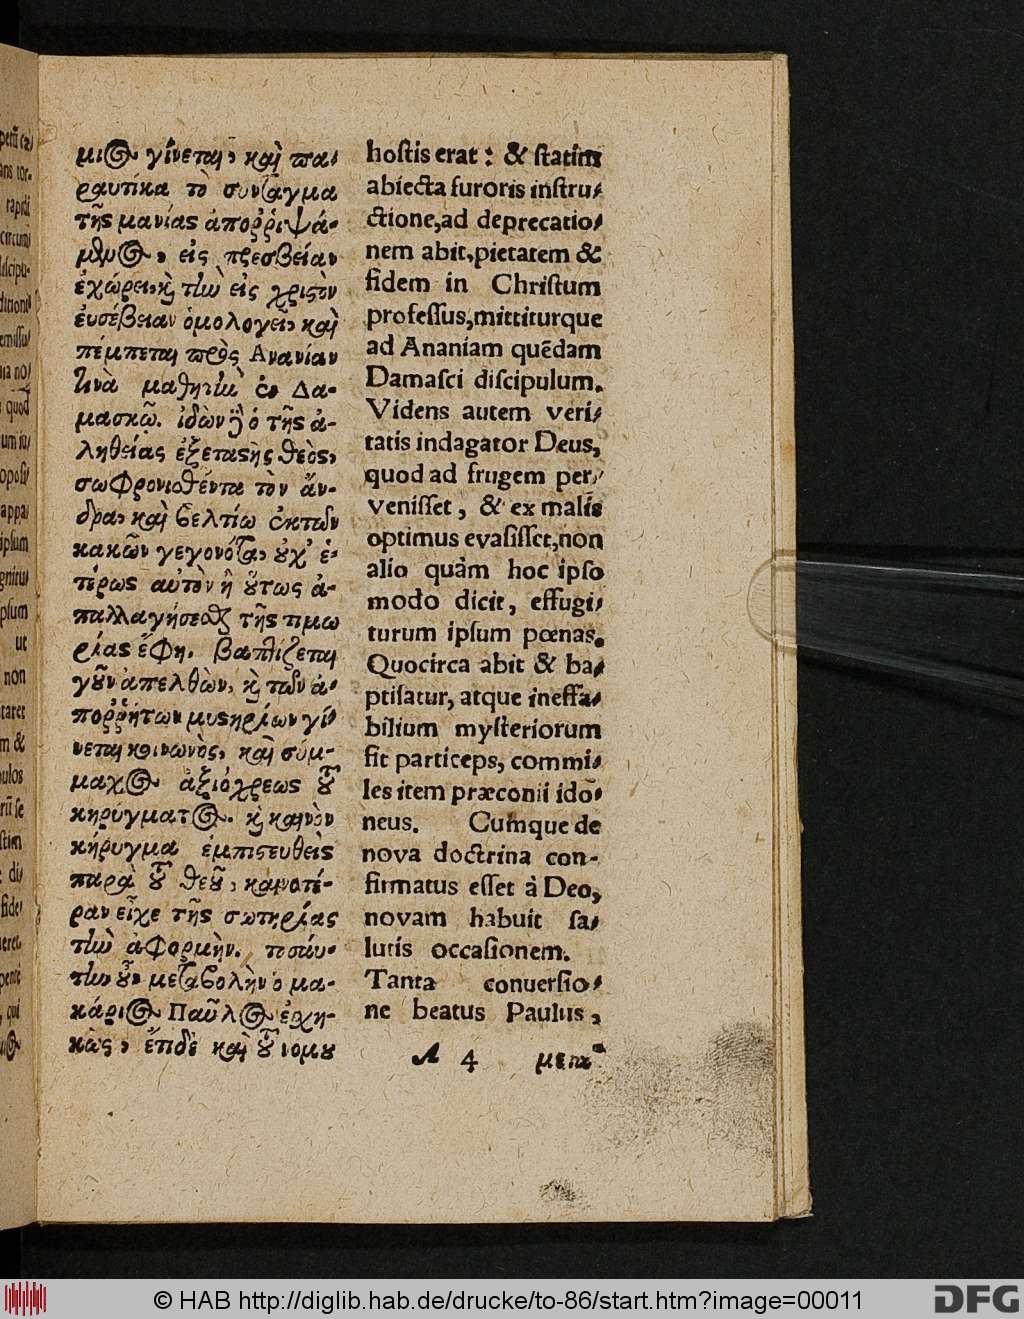 μιος γίνεται, καὶ πα-
ραυτίκα τὸ σύνταγμα
τῆς μανίας ἀποῤῥιψά-
μενος, εἰς πρεσβείαν
ἐχώρει, καὶ τὴν εἰς χριστὸν
ἐυσέβειαν ὁμολογεῖ, καὶ
πέμπεται πρὸς Ἀνανίαν
τινὰ μαθητὴν ἐν Δα-
μασκῷ. ἰδὼν δὲ ὁ τῆς ἀ-
ληθείας ἐξεταστὴς θεὸς,
σωφρονισθέντα τὸν ἄν-
δρα, καὶ βελτίω ἐκ τῶν
κακῶν γεγονότα, οὐχ' ἑ-
τέρως αὐτὸν ἢ οὕτως ἀ-
παλλαγήσεσθαι τῆς τιμω
ρίας ἔφη. βαπτίζεται
γοῦν ἀπελθὼν, καὶ τῶν ἀ-
ποῤῥήτων μυστηρίων γί-
νεται κοινωνὸς, καὶ σύμ-
μαχος ἀξιόχρεως τοῦ
κηρύγματος. καὶ καινὸν
κήρυγμα ἐμπιστευθεὶς
παρὰ τοῦ θεοῦ, καινοτέ-
ραν εἶχε τῆς σωτηρίας
τὴν ἀφορμήν. τοσαύ-
την οὖν μεταβολὴν ὁ μα-
κάριος Παῦλος ἐσχη-
κὼς, ἐπιδὲ καὶ τοῦ νομου
hostis erat: & statim
abiecta furoris instru-
ctione, ad deprecatio-
nem abit, pietatem &
fidem in Christum
professus, mittiturque
ad Ananiam quēdam
Damasci discipulum.
Videns autem veri-
tatis indagator Deus,
quod ad frugem per-
venisset, & ex malis
optimus evasisset, non
alio quàm hoc ipso
modo dicit, effugi-
turum ipsum pœnas.
Quocirca abit & ba-
ptisatur, atque ineffa-
bilium mysteriorum
fit particeps, commi-
les item præconii ido-
neus. Cumque de
nova doctrina con-
firmatus esset à Deo,
novam habuit sa-
lutis occasionem.
Tanta conversio-
ne beatus Paulus,
A 4 μετα
© HAB http://diglib.hab.de/drucke/to-86/start.htm?image=00011
DFG